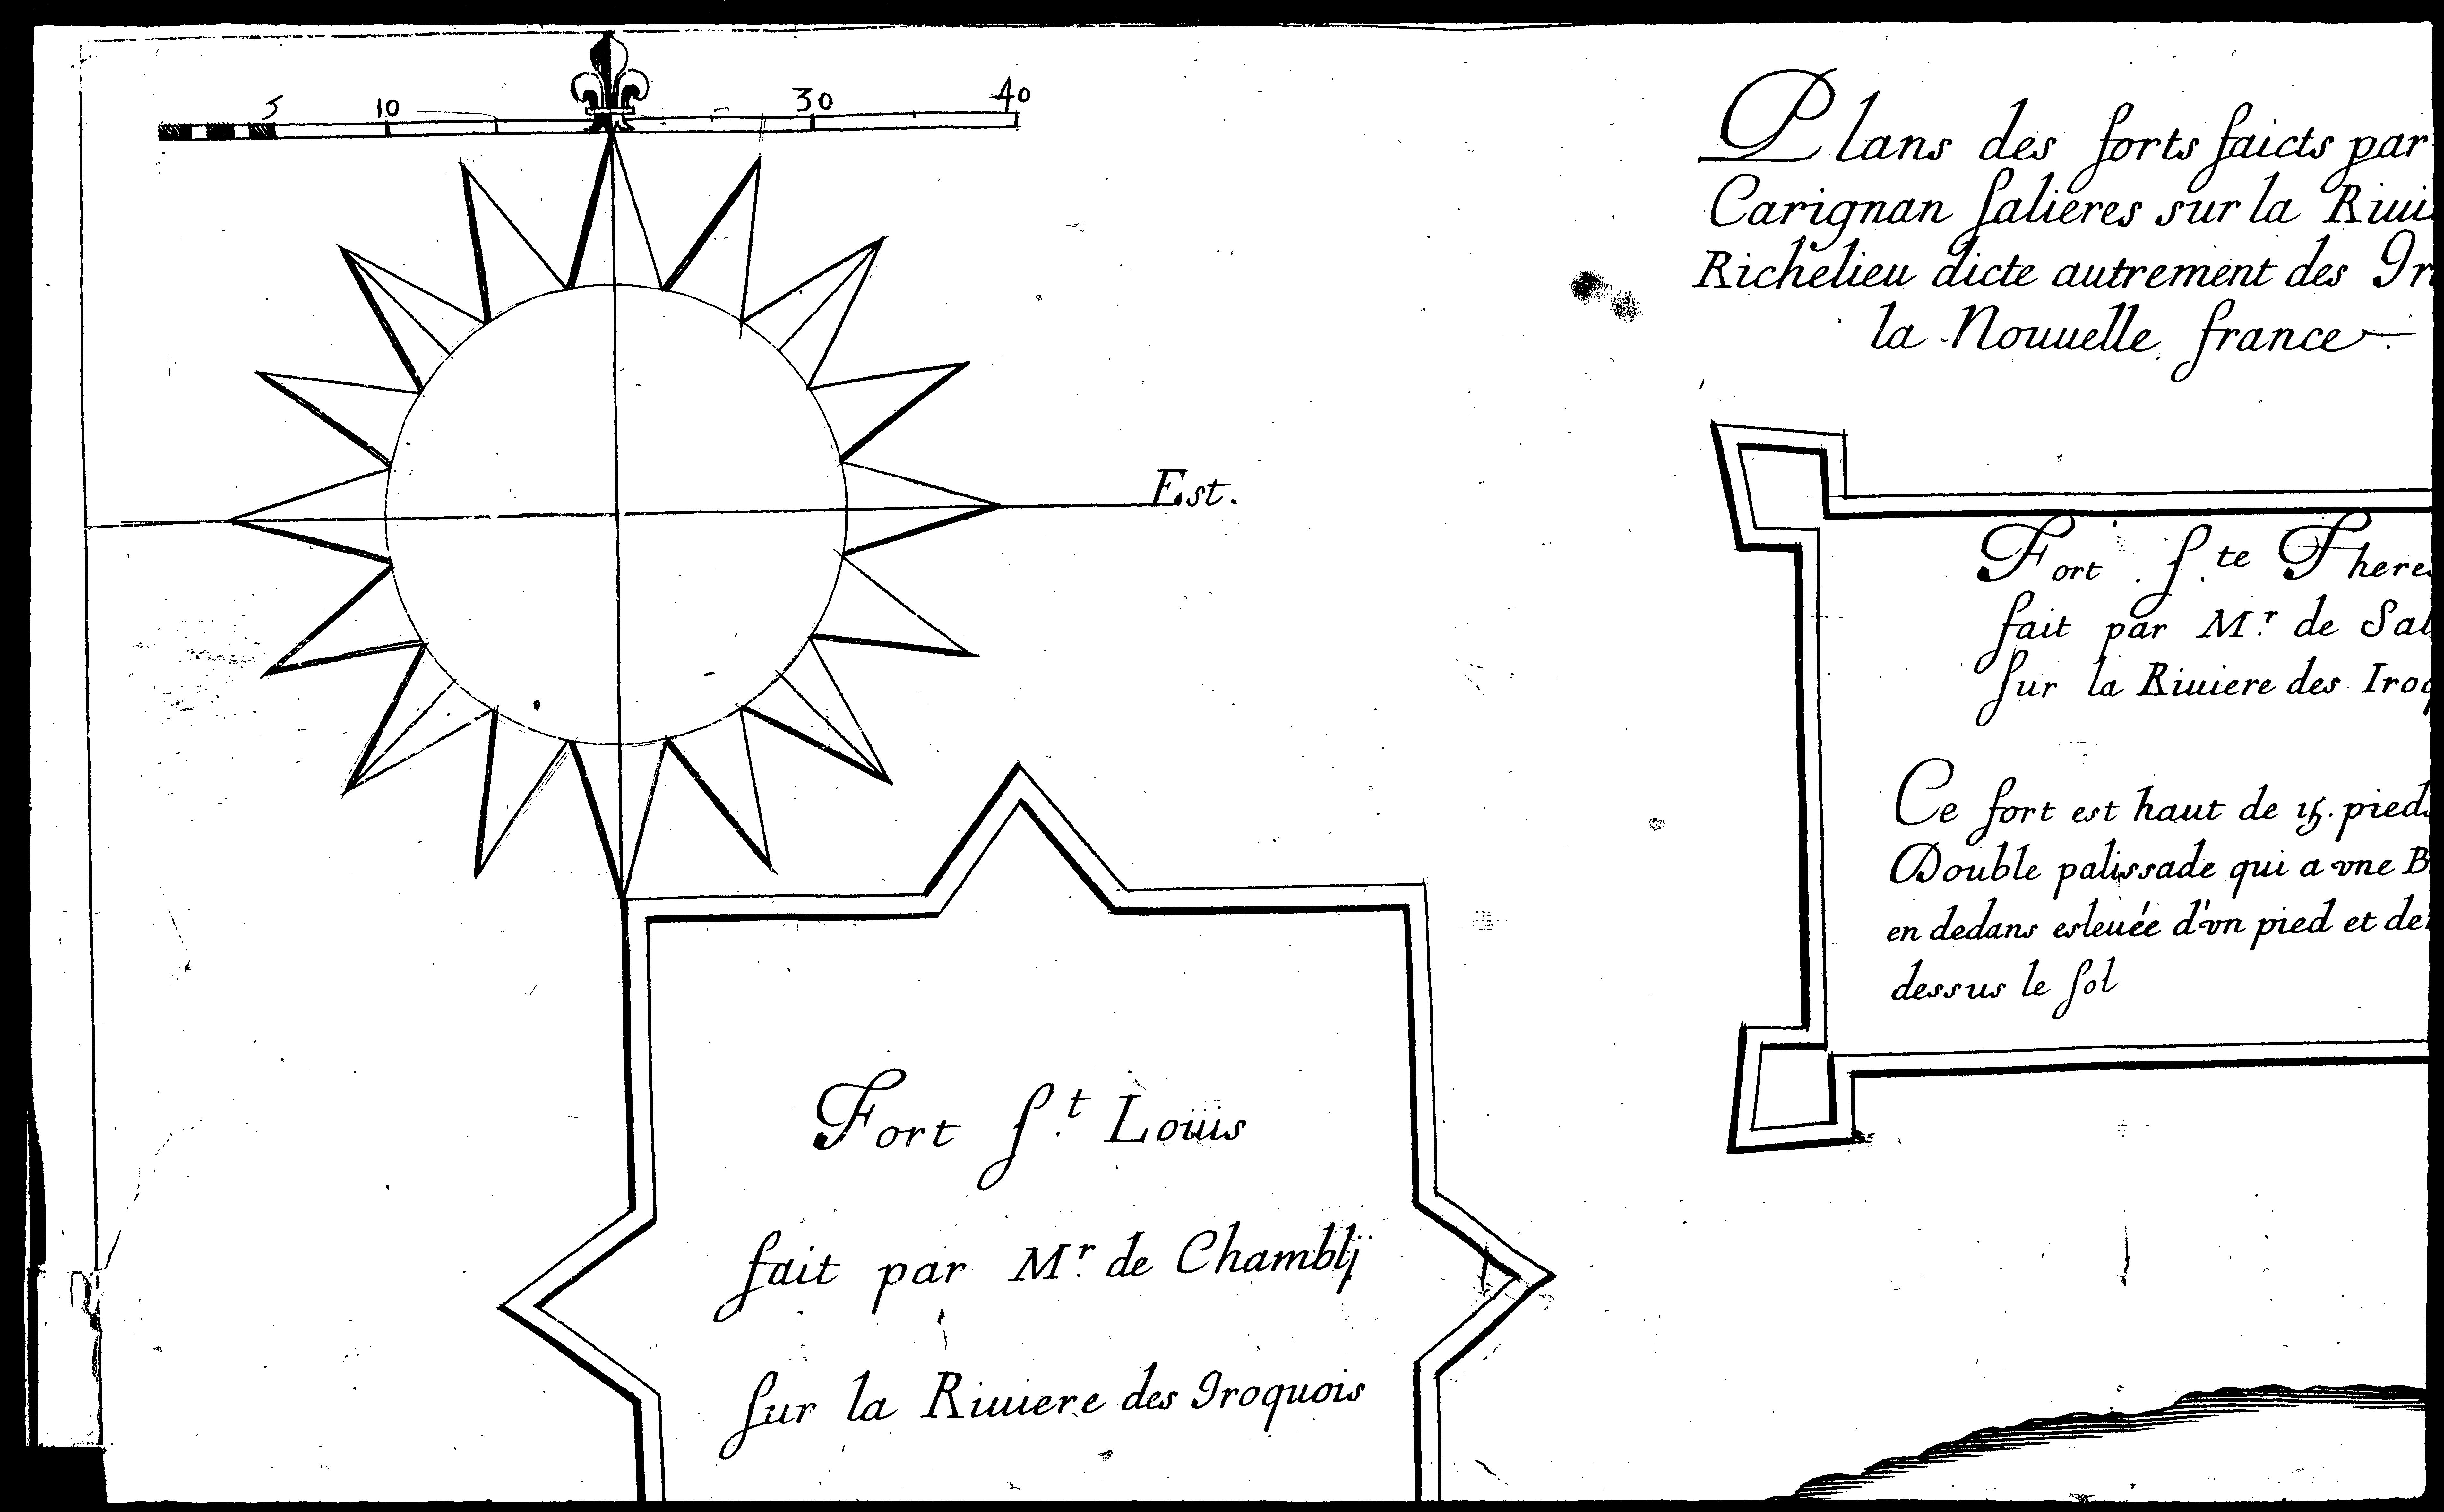 5 10 30 40
Plans des forts faicts par
Carignan Salieres sur la Riui
Richelieu dicte autrement des Ir
la Nouuelle france
Est.
Fort Ste There
fait par Mr. de Sal
sur la Riuiere des Iroq
Ce fort est haut de 15. pieds
Double palissade qui a vne B
en dedans esleuée d'vn pied et de
dessus le sol
Fort St. Loüis
fait par Mr. de Chamblÿ
sur la Riuiere des Iroquois